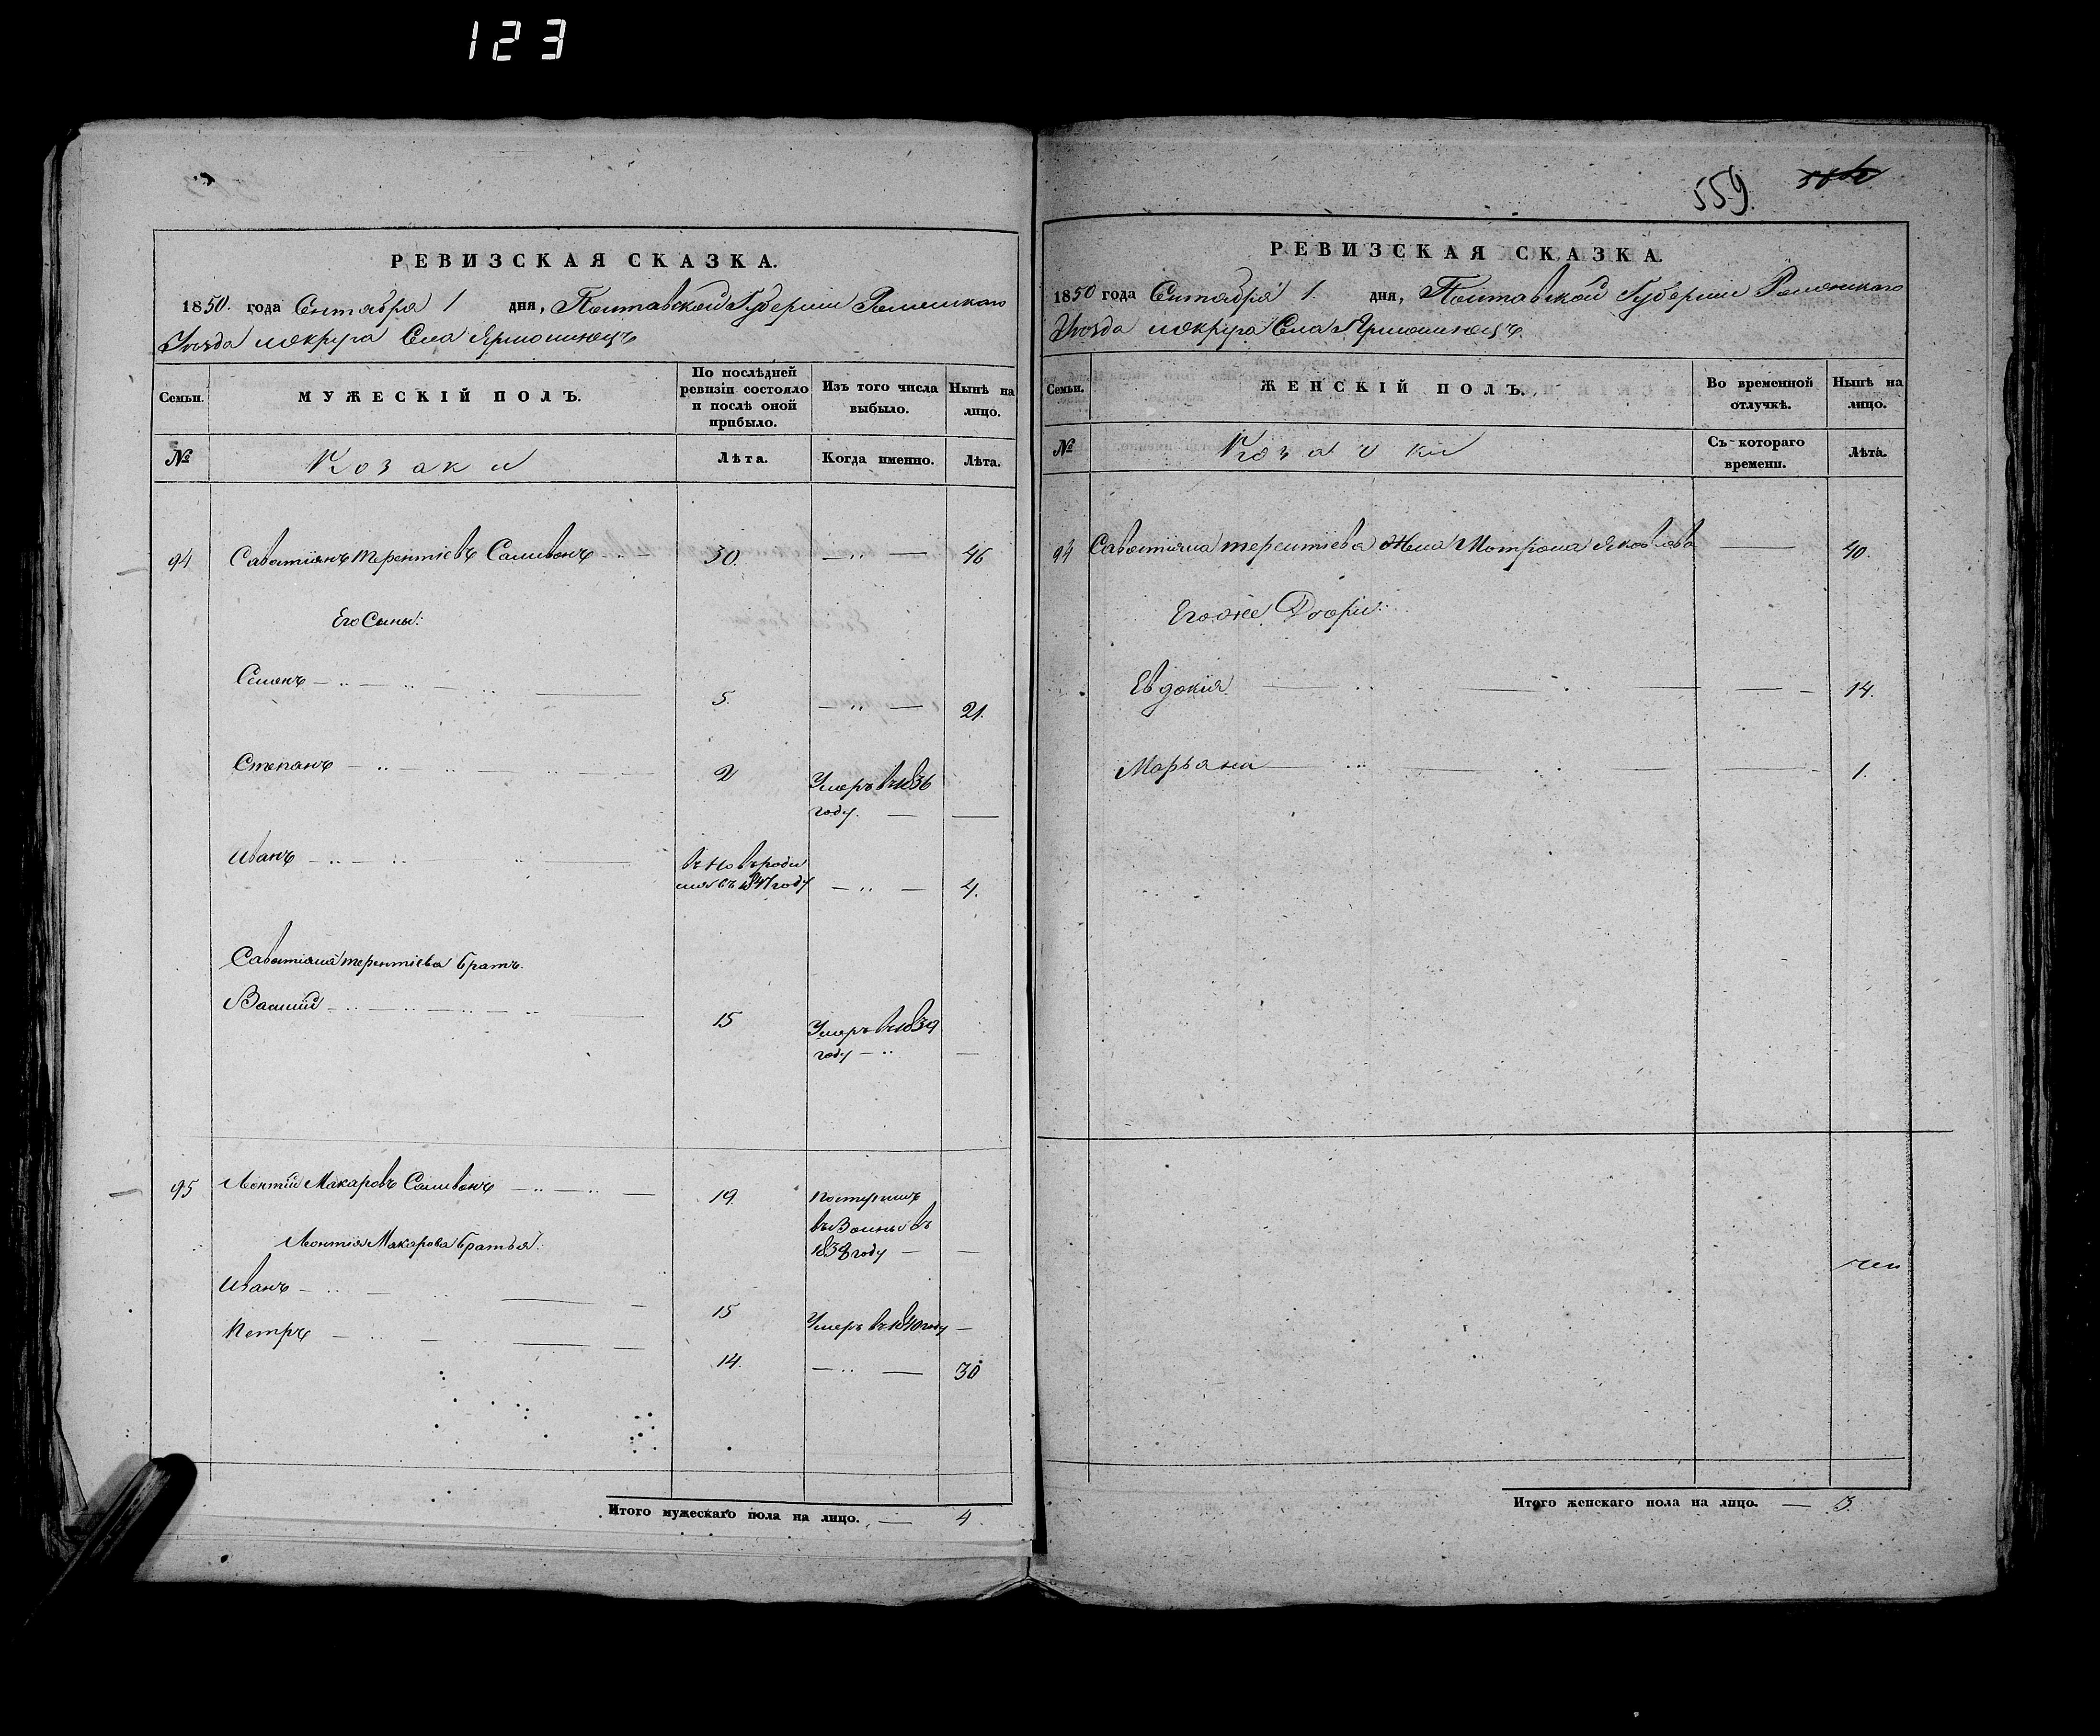 123
РЕВИЗСКАЯ СКАЗКА.
1850. года Сентября 1 дня, Полтавской Губерніи Роменскаго
Уѣзда и округа Села Ярмолинецъ
Семьи. МУЖЕСКІЙ ПОЛЪ. По послѣдней ревизіи состояло и послѣ оной прибыло. Изъ того числа выбыло. Нынѣ на лицо.
№ Козаки Лѣта. Когда именно. Лѣта.
94 Савостіянъ Терентіевъ Саливонъ 30. 46
Его Сыны:
Семенъ 5. 21.
Степанъ 2 Умеръ въ 1836
году.
Иванъ въ новъ роди
лся въ 1847 году 4.
Савостіяна Терентіева братъ.
Василій 15 Умеръ въ 1839
году
95 Леонтій Макаровъ Саливонъ 19. поступилъ
въ
1838 году
Леонтія Макарова братья:
Иванъ 15 Умеръ въ 1840 году
Петръ 14. 30
Итого мужескаго пола на лицо. 4
559.
РЕВИЗСКАЯ СКАЗКА.
1850 года Сентября 1. дня, Полтавской Губерніи Роменскаго
Уѣзда и округа Села Ярмолинецъ.
Семьи. ЖЕНСКІЙ ПОЛЪ. Во временной отлучкѣ. Нынѣ на лицо.
№ Козачки Съ котораго времени. Лѣта.
94 Савостіяна Терентіева Жена Мотрона Яковлева 40.
Егоже Дочери:
Евдокія 14.
Марьяна 1.
Итого женскаго пола на лицо. 3.